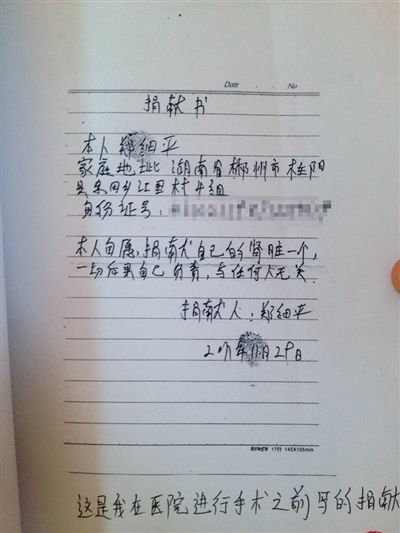 Date . . No
捐献书
本人郑细平
家庭地址 湖南省郴州市桂阳
县东回乡江里村4组
身份证号:
本人自愿,捐献自己的肾脏一个,
一切后果自己负责,与任何人无关.
捐献人:郑细平
月29日
17行 145X106mm
这是我在医院进行手术之前写的捐献